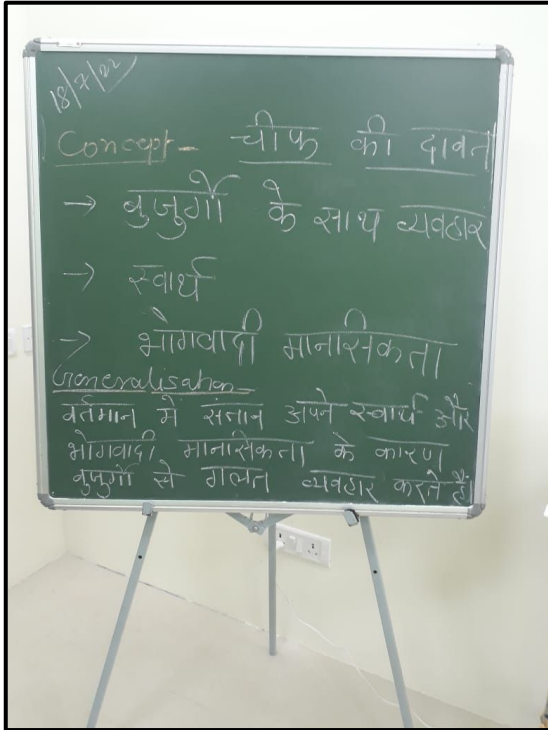 18/7/22
Concept- चीफ की दावत
→ बुजुर्गों के साथ व्यवहार
→ स्वार्थ
→ भोगवादी मानसिकता
Generalisation-
वर्तमान में संतान अपने स्वार्थ और
भोगवादी मानसिकता के कारण
बुजुर्गों से गलत व्यवहार करते हैं।